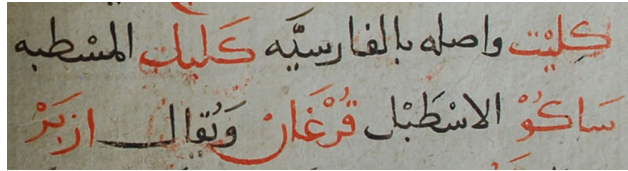 كِلِيْت واصله بالفارسيَّه كَليك المسْطبه
سَاكُوْ الاسْطَبْل قُرْغَانْ وَيُقال ازبَرْ